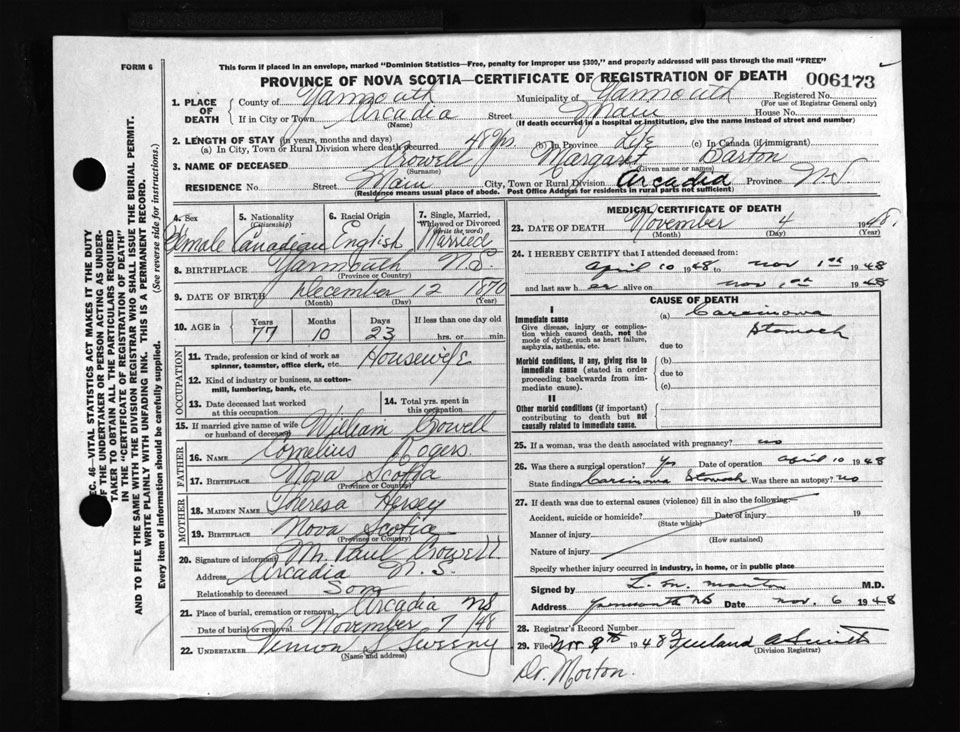 FORM 6
This form if placed in an envelope, marked "Dominion Statistics—Free, penalty for improper use $300," and properly addressed will pass through the mail "FREE"
PROVINCE OF NOVA SCOTIA—CERTIFICATE OF REGISTRATION OF DEATH 006173
1. PLACE OF DEATH County of Yarmouth Municipality of Yarmouth Registered No.
(For use of Registrar General only)
If in City or Town Arcadia Street Main House No.
(Name) (If death occurred in a hospital or institution, give the name instead of street and number)
2. LENGTH OF STAY (in years, months and days)
(a) In City, Town or Rural Division where death occurred 48 yrs (b) In Province Life (c) In Canada (if immigrant)
3. NAME OF DECEASED Crowell Margaret Barton
(Surname) (Given name or names)
RESIDENCE No. Street Main City, Town or Rural Division Arcadia Province N.S.
(Residence means usual place of abode. Post Office Address for residents in rural parts not sufficient)
4. Sex Female
5. Nationality (Citizenship) Canadian
6. Racial Origin English
7. Single, Married, Widowed or Divorced (Write the word) Married
8. BIRTHPLACE Yarmouth N.S.
(Province or Country)
9. DATE OF BIRTH December 12 1870
(Month) (Day) (Year)
10. AGE in Years Months Days If less than one day old
77 10 23 hrs. or min.
OCCUPATION
11. Trade, profession or kind of work as spinner, teamster, office clerk, etc. Housewife
12. Kind of industry or business, as cotton-mill, lumbering, bank, etc.
13. Date deceased last worked at this occupation
14. Total yrs. spent in this occupation
15. If married give name of wife or husband of deceased William Crowell
FATHER
16. NAME Cornelius Rogers
17. BIRTHPLACE Nova Scotia
(Province or Country)
MOTHER
18. MAIDEN NAME Theresa Hersey
19. BIRTHPLACE Nova Scotia
(Province or Country)
20. Signature of informant M. Paul Crowell
Address Arcadia N.S.
Relationship to deceased Son
21. Place of burial, cremation or removal Arcadia NS
Date of burial or removal November 7/48
22. UNDERTAKER Vernon S Sweeny
(Name and address)
MEDICAL CERTIFICATE OF DEATH
23. DATE OF DEATH November 4 1948
(Month) (Day) (Year)
24. I HEREBY CERTIFY that I attended deceased from:
April 10 1948 to Nov 1st 1948
and last saw her alive on Nov 1st 1948
CAUSE OF DEATH
I
Immediate cause (a) Carcinoma
Give disease, injury or complication which caused death, not the mode of dying, such as heart failure, asphyxia, asthenia, etc. Stomach
due to
Morbid conditions, if any, giving rise to immediate cause (stated in order proceeding backwards from immediate cause). (b)
due to
(c)
II
Other morbid conditions (if important) contributing to death but not causally related to immediate cause.
25. If a woman, was the death associated with pregnancy? no
26. Was there a surgical operation? Yes Date of operation April 10 1948
State findings Carcinoma Stomach Was there an autopsy? no
27. If death was due to external causes (violence) fill in also the following:
Accident, suicide or homicide? Date of injury 19
(State which)
Manner of injury
(How sustained)
Nature of injury
Specify whether injury occurred in industry, in home, or in public place
Signed by L. M. Morton M.D.
Address Yarmouth NS Date Nov. 6 1948
28. Registrar's Record Number
29. Filed Nov 9th 1948 A Smith
(Division Registrar)
Dr. Morton.
SEC. 46—VITAL STATISTICS ACT MAKES IT THE DUTY
OF THE UNDERTAKER OR PERSON ACTING AS UNDERTAKER TO OBTAIN ALL THE PARTICULARS REQUIRED
IN THE "CERTIFICATE OF REGISTRATION OF DEATH"
AND TO FILE THE SAME WITH THE DIVISION REGISTRAR WHO SHALL ISSUE THE BURIAL PERMIT.
WRITE PLAINLY WITH UNFADING INK. THIS IS A PERMANENT RECORD.
Every item of information should be carefully supplied. (See reverse side for instructions.)